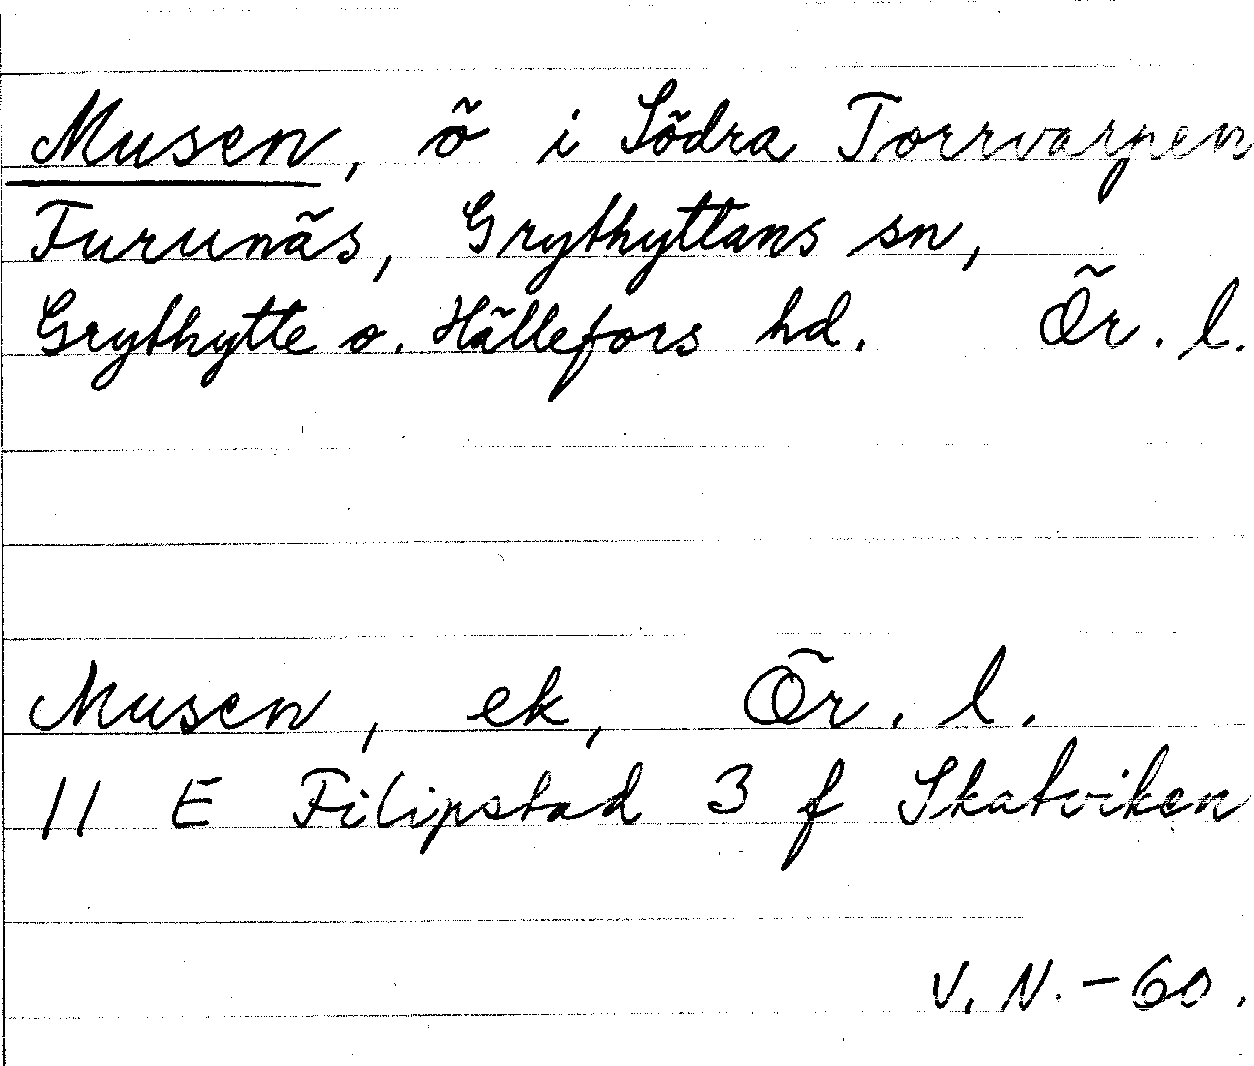 Musen, ö i Södra Torrvarpen
Furunäs, Grythyttans sn,
Grythytte o. Hällefors hd. Ör. l.
Musen, ek, Ör. l.
11 E Filipstad 3 f Skatviken
V. N. - 60.